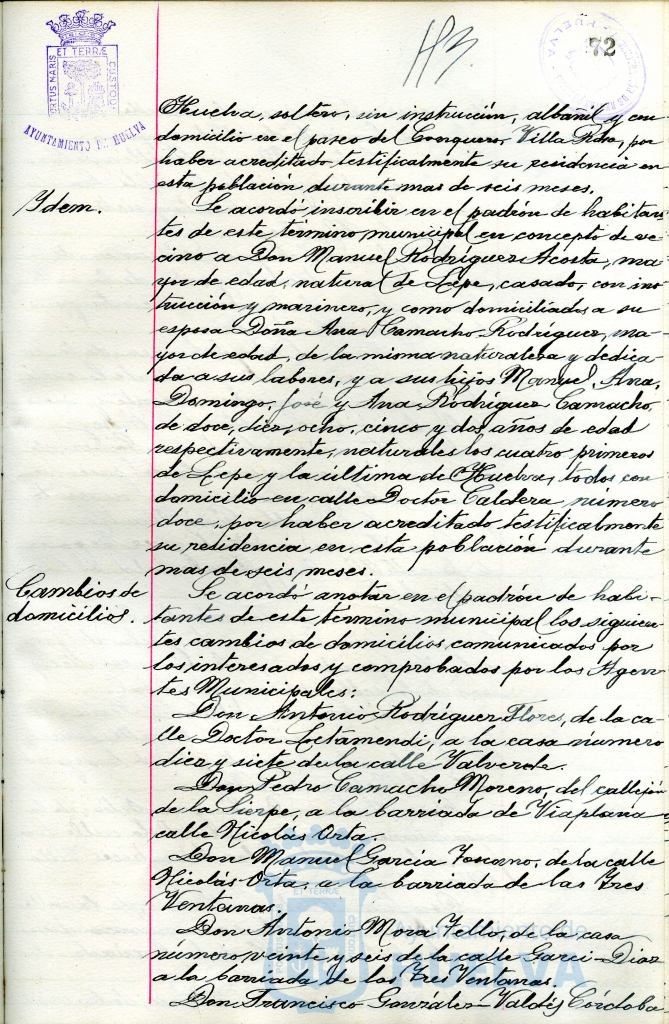 113.
72
ET TERRÆ
CUSTODI
AYUNTAMIENTO DE HUELVA
Huelva, soltero, sin instrucción, albañil y con
domicilio en el paseo del Conquero, Villa Rdro, por
haber acreditado testificalmente su residencia en
esta población durante mas de seis meses.
Ydem.
Se acordó inscribir en el padrón de habitan-
tes de este término municipal en concepto de ve-
cino a Don Manuel Rodríguez Acosta, ma-
yor de edad, natural de Lepe, casado, con ins-
trucción y marinero, y como domiciliados a su
esposa Doña Ana Camacho Rodríguez, ma-
yor de edad, de la misma naturaleza y dedica-
da a sus labores, y a sus hijos Manuel, Ana,
Domingo, José y Ana Rodríguez Camacho,
de doce, diez, ocho, cinco y dos años de edad
respectivamente, naturales los cuatro primeros
de Lepe y la última de Huelva, todos con
domicilio en calle Doctor Caldera número
doce, por haber acreditado testificalmente
su residencia en esta población durante
mas de seis meses.
Cambios de
domicilios.
Se acordó anotar en el padrón de habi-
tantes de este término municipal los siguien-
tes cambios de domicilios comunicados por
los interesados y comprobados por los Agen-
tes Municipales:
Don Antonio Rodríguez Flores, de la ca-
lle Doctor Letamendi, a la casa número
diez y siete de la calle Valverde.
Don Pedro Camacho Moreno, del callejón
de la Sierpe, a la barriada de Viaplana
calle Nicolás Orta.
Don Manuel García Toscano, de la calle
Nicolás Orta, a la barriada de las Tres
Ventanas.
Don Antonio Mora Tello, de la casa
número veinte y seis de la calle Garci-Díaz
a la barriada de las Tres Ventanas.
Don Francisco González-Valdés Córdoba
HUELVA